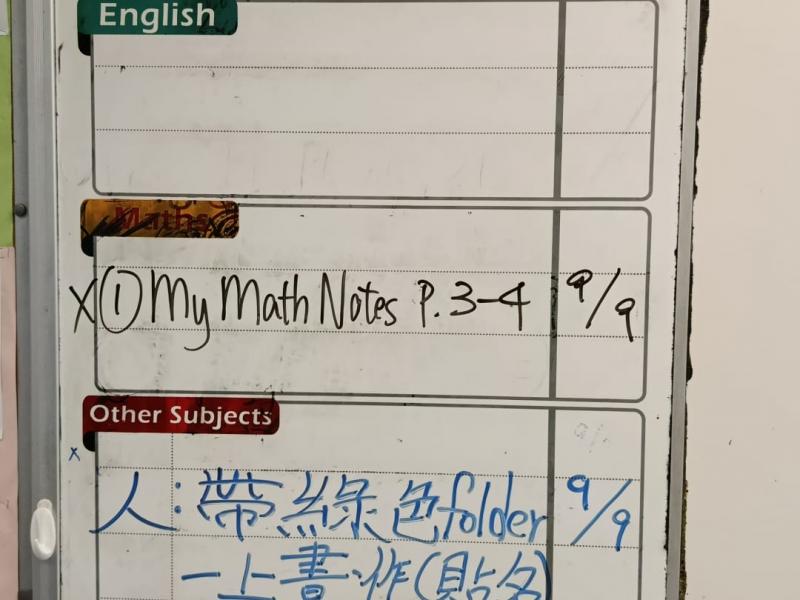 English
Maths
x ① My Math Notes P.3-4 9/9
Other Subjects
x
人:帶綠色folder 9/9
一上書、作(貼名)